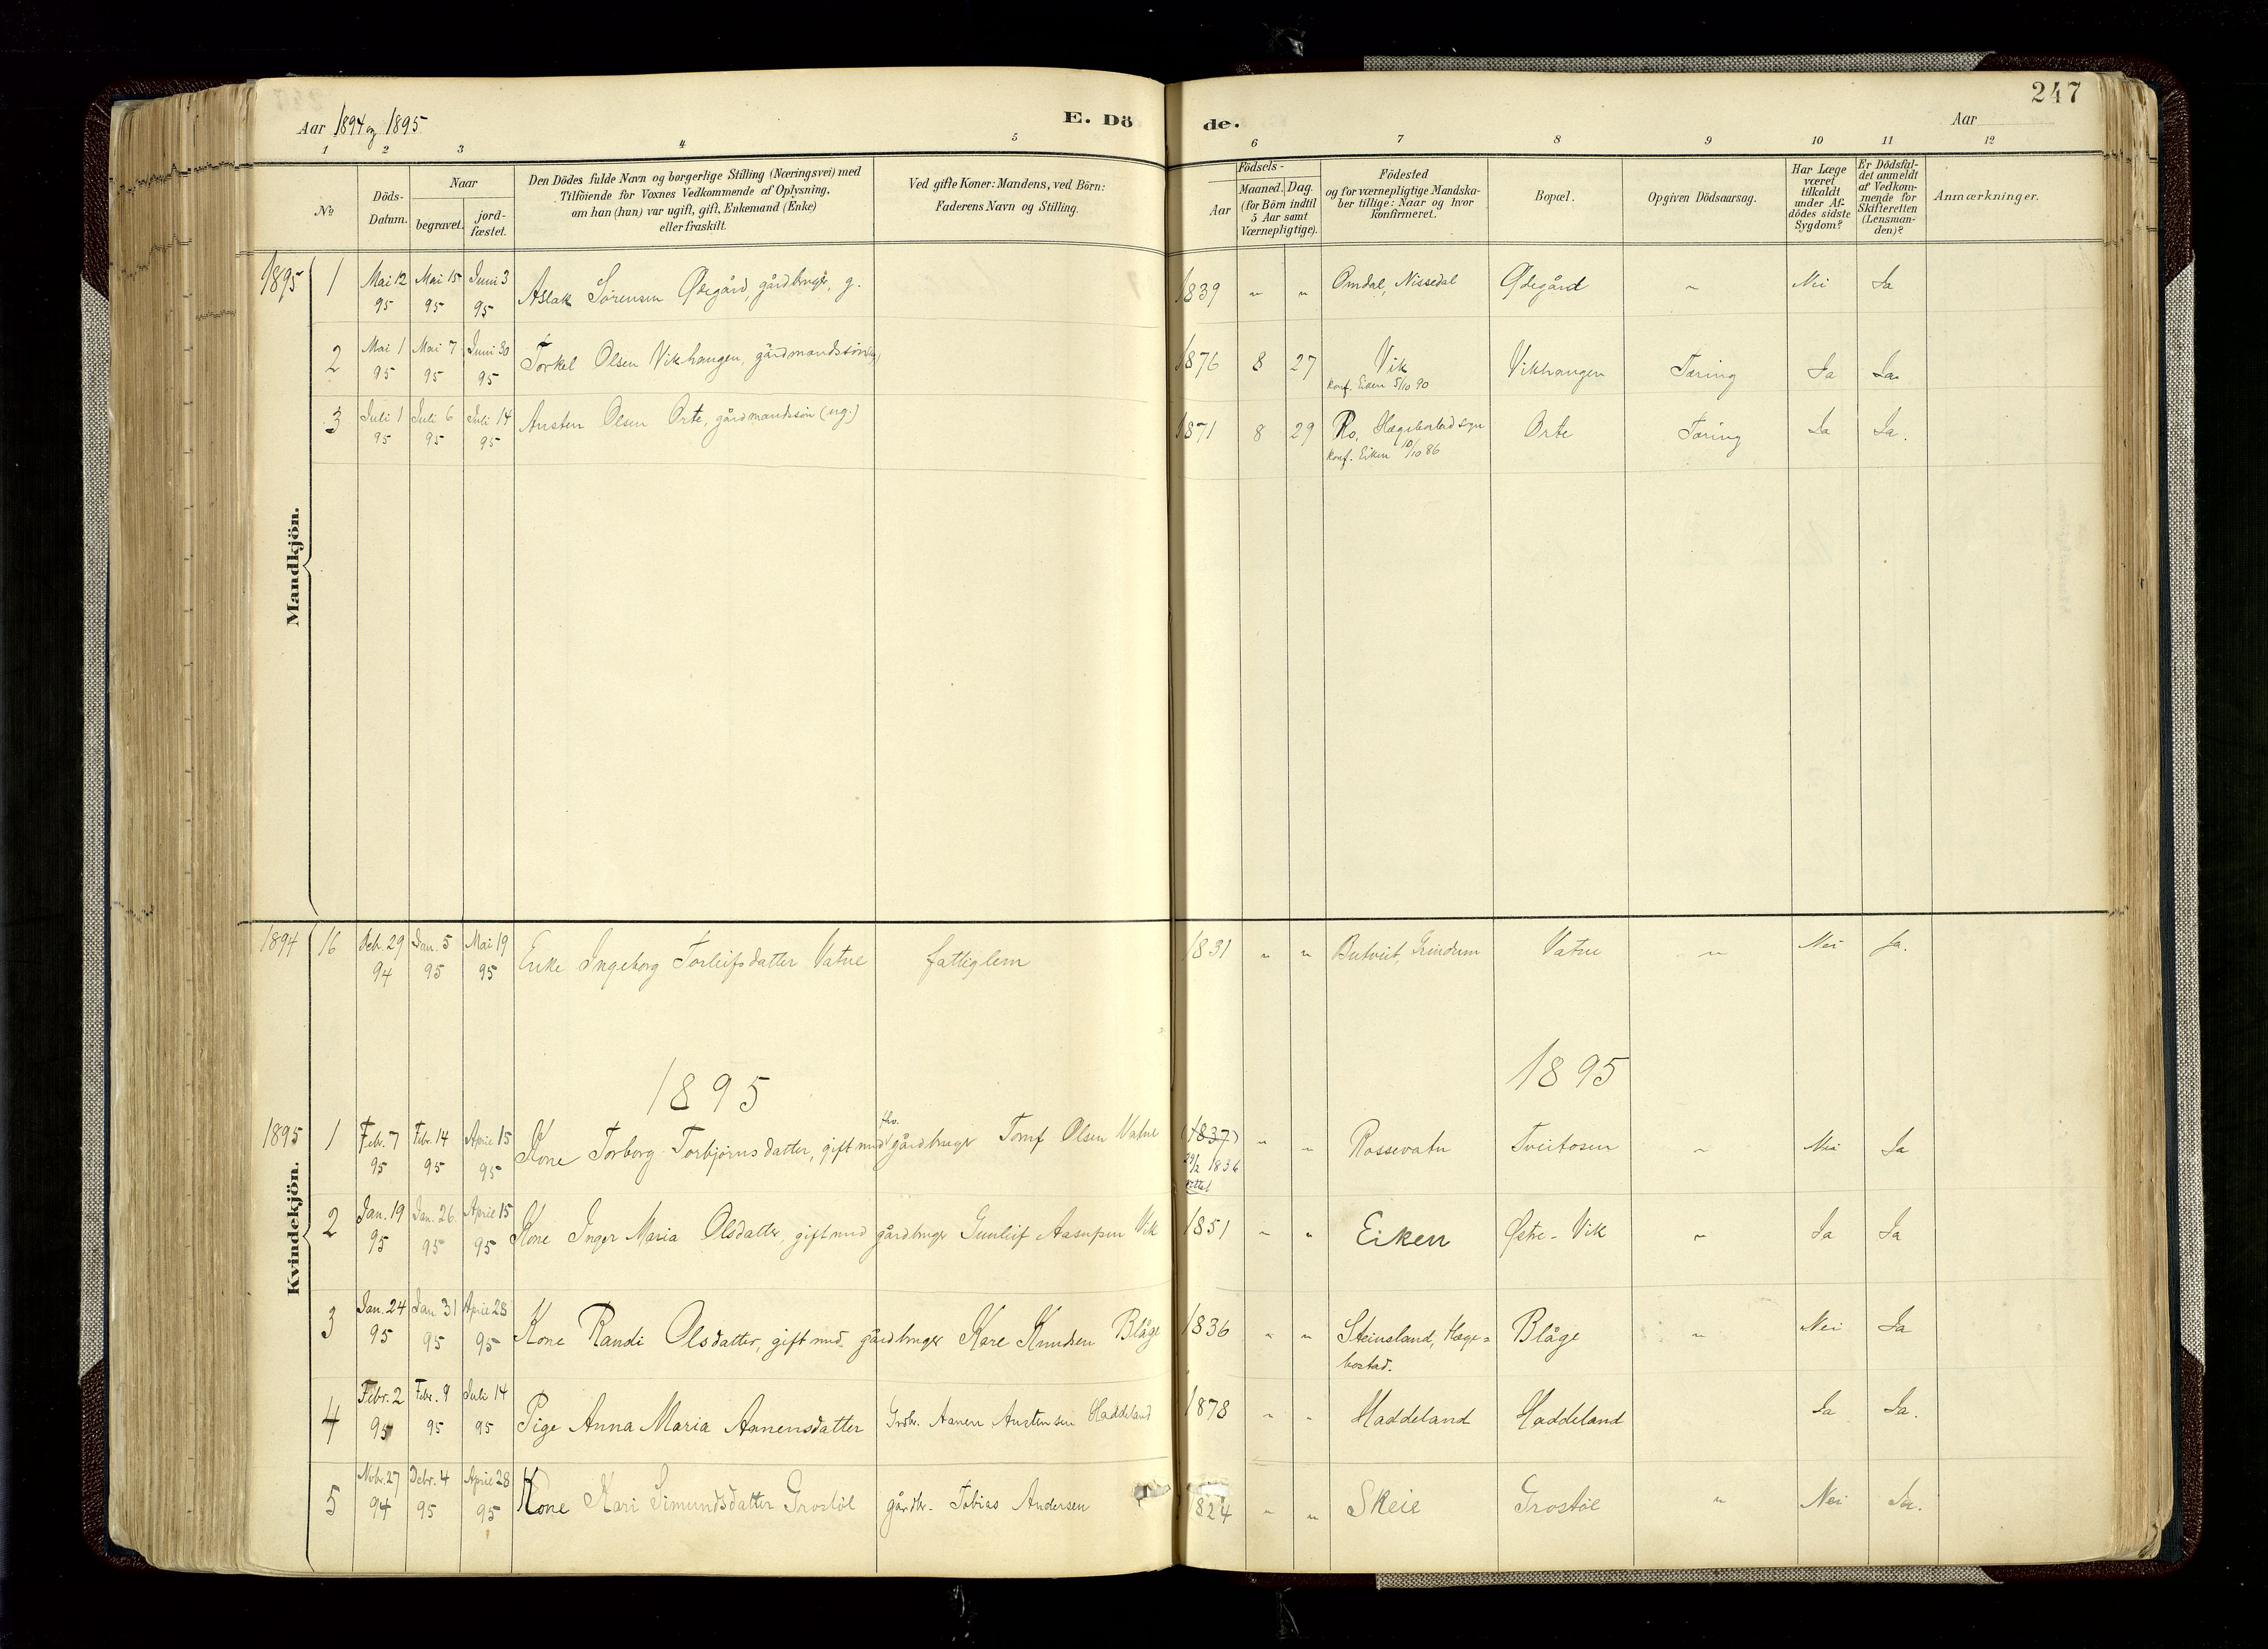 247
Aar 1894 og 1895
E. Dö
de.
Aar
1 2 3 4 5 6 7 8 9 10 11 12
No
Döds-
Datum.
Naar
begravet.
jord-
fæstet.
Den Dödes fulde Navn og borgerlige Stilling (Næringsvei) med
Tilföiende for Voxnes Vedkommende af Oplysning,
om han (hun) var ugift, gift, Enkemand (Enke)
eller fraskilt.
Ved gifte Koner: Mandens, ved Börn:
Faderens Navn og Stilling.
Födsels-
Aar
Maaned.
Dag.
(for Börn indtil
5 Aar samt
Værnepligtige).
Födested
og for værnepligtige Mandska-
ber tillige: Naar og hvor
konfirmeret.
Bopæl.
Opgiven Dödsaarsag.
Har Læge
været
tilkaldt
under Af-
dödes sidste
Sygdom?
Er Dödsfal-
det anmeldt
af Vedkom-
mende for
Skifteretten
(Lensman-
den)?
Anmærkninger.
Mandkjön.
1895 1 Mai 12 95 Mai 15 95 Juni 3 95 Aslak Sørensen Ødegård, gårdbruger, g. 1839 " " Omdal, Nissedal Ødegård " Nei Ja
2 Mai 1 95 Mai 7 95 Juni 30 95 Torkel Olsen Vikhaugen, gårdmandssøn 1876 8 27 Vik Vikhaugen Tæring Ja Ja
konf. Eiken 5/10 90
3 Juli 1 95 Juli 6 95 Juli 14 95 Austen Olsen Orte, gårdmandssøn (ug.) 1871 8 29 Ro, Hægebostad sogn Orte Tæring Ja Ja.
konf. Eiken 10/10 86
Kvindekjön.
1894 16 Deb. 29 94 Jan. 5 95 Mai 19 95 Enke Ingeborg Torleifsdatter Vatne fattiglem 1831 " " Butveit, Grindum Vatne " Nei Ja.
1895
1895
1895 1 Febr. 7 95 Febr. 14 95 April 15 95 Kone Torborg Torbjørnsdatter, gift med fhv. gårdbruger Tomf Olsen Vatne (1837) " " Rossevatn Tveitosen " Nei Ja
29/2 1836
rettet
2 Jan. 19 95 Jan. 26 95 April 15 95 Kone Inger Maria Olsdatter, gift med gårdbruger Gunleif Aasupsen Vik 1851 " " Eiken Østre-Vik " Ja Ja
3 Jan. 24 95 Jan. 31 95 April 28 95 Kone Randi Olsdatter, gift med gårdbruger Kore Knudsen Blåge 1836 " " Steinsland, Hæge= Blåge " Nei Ja
bostad.
4 Febr. 2 95 Febr. 9 95 Juli 14 95 Pige Anna Maria Annensdatter Grdbr. Aanen Austensen Haddeland 1878 " " Haddeland Haddeland Ja Ja.
5 Nobr. 27 94 Debr. 4 95 April 28 95 Kone Kari Simundsdatter Grostøl gårdbr. Tobias Andersen 1824 " " Skeie Grostøl " Nei Ja.